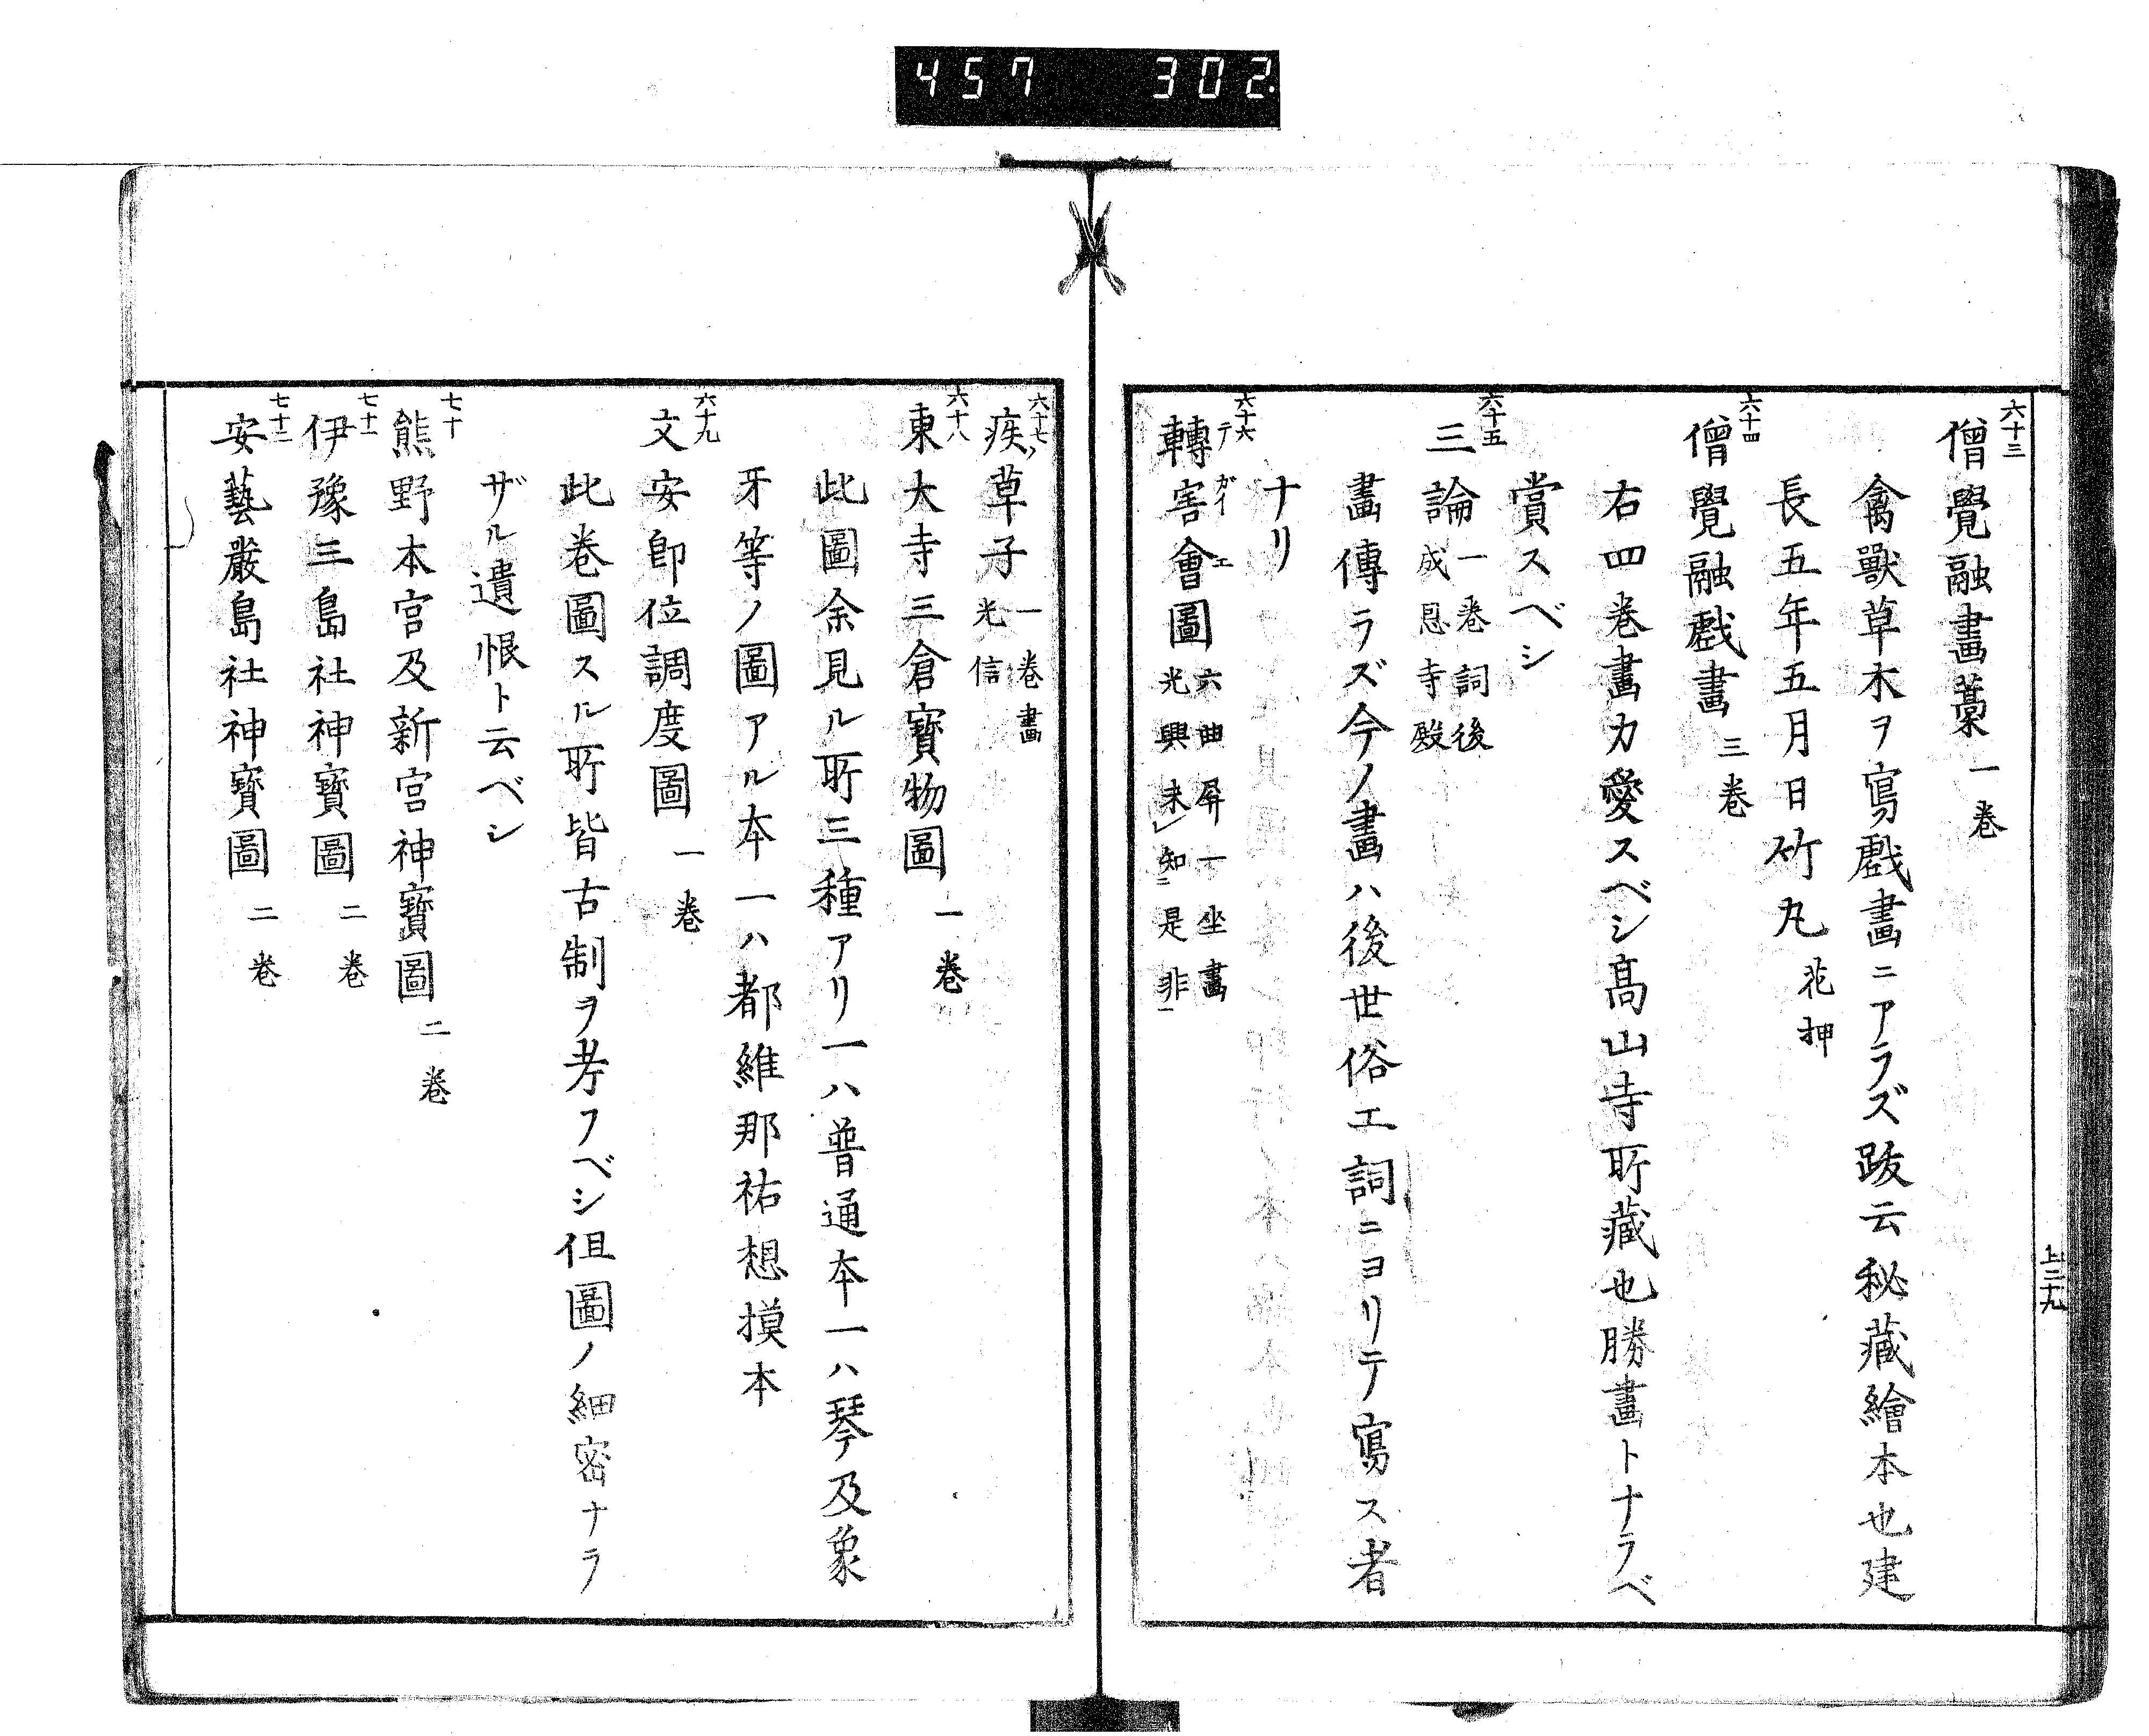 457 302.
六十三
僧覺融畫藁 一卷
禽獸草木ヲ寫戲畫ニアラズ跋云秘藏繪本也建
長五年五月日竹丸 花押
六十四
僧覺融戲畫 三卷
右四卷畫力愛スベシ髙山寺所藏也勝畫トナラベ
賞スベシ
六十五
三論 一卷詞後
成恩寺殿
畫傳ラズ今ノ畫ハ後世俗工詞ニヨリテ寫ス者
ナリ
六十六
轉害會圖 六曲屏一坐畫
テガイエ
光興未知是非
上三十九
六十七
疾草子 一卷畫
光信
六十八
東大寺三倉寶物圖 一卷
此圖余見ル所三種アリ一ハ普通本一ハ琴及象
牙等ノ圖アル本一ハ都維那祐想摸本
六十九
文安即位調度圖 一卷
此卷圖スル所皆古制ヲ考フベシ但圖ノ細密ナラ
ザル遺恨ト云ベシ
七十
熊野本宮及新宮神寶圖 二卷
七十一
伊豫三島社神寶圖 二卷
七十二
安藝嚴島社神寶圖 二卷